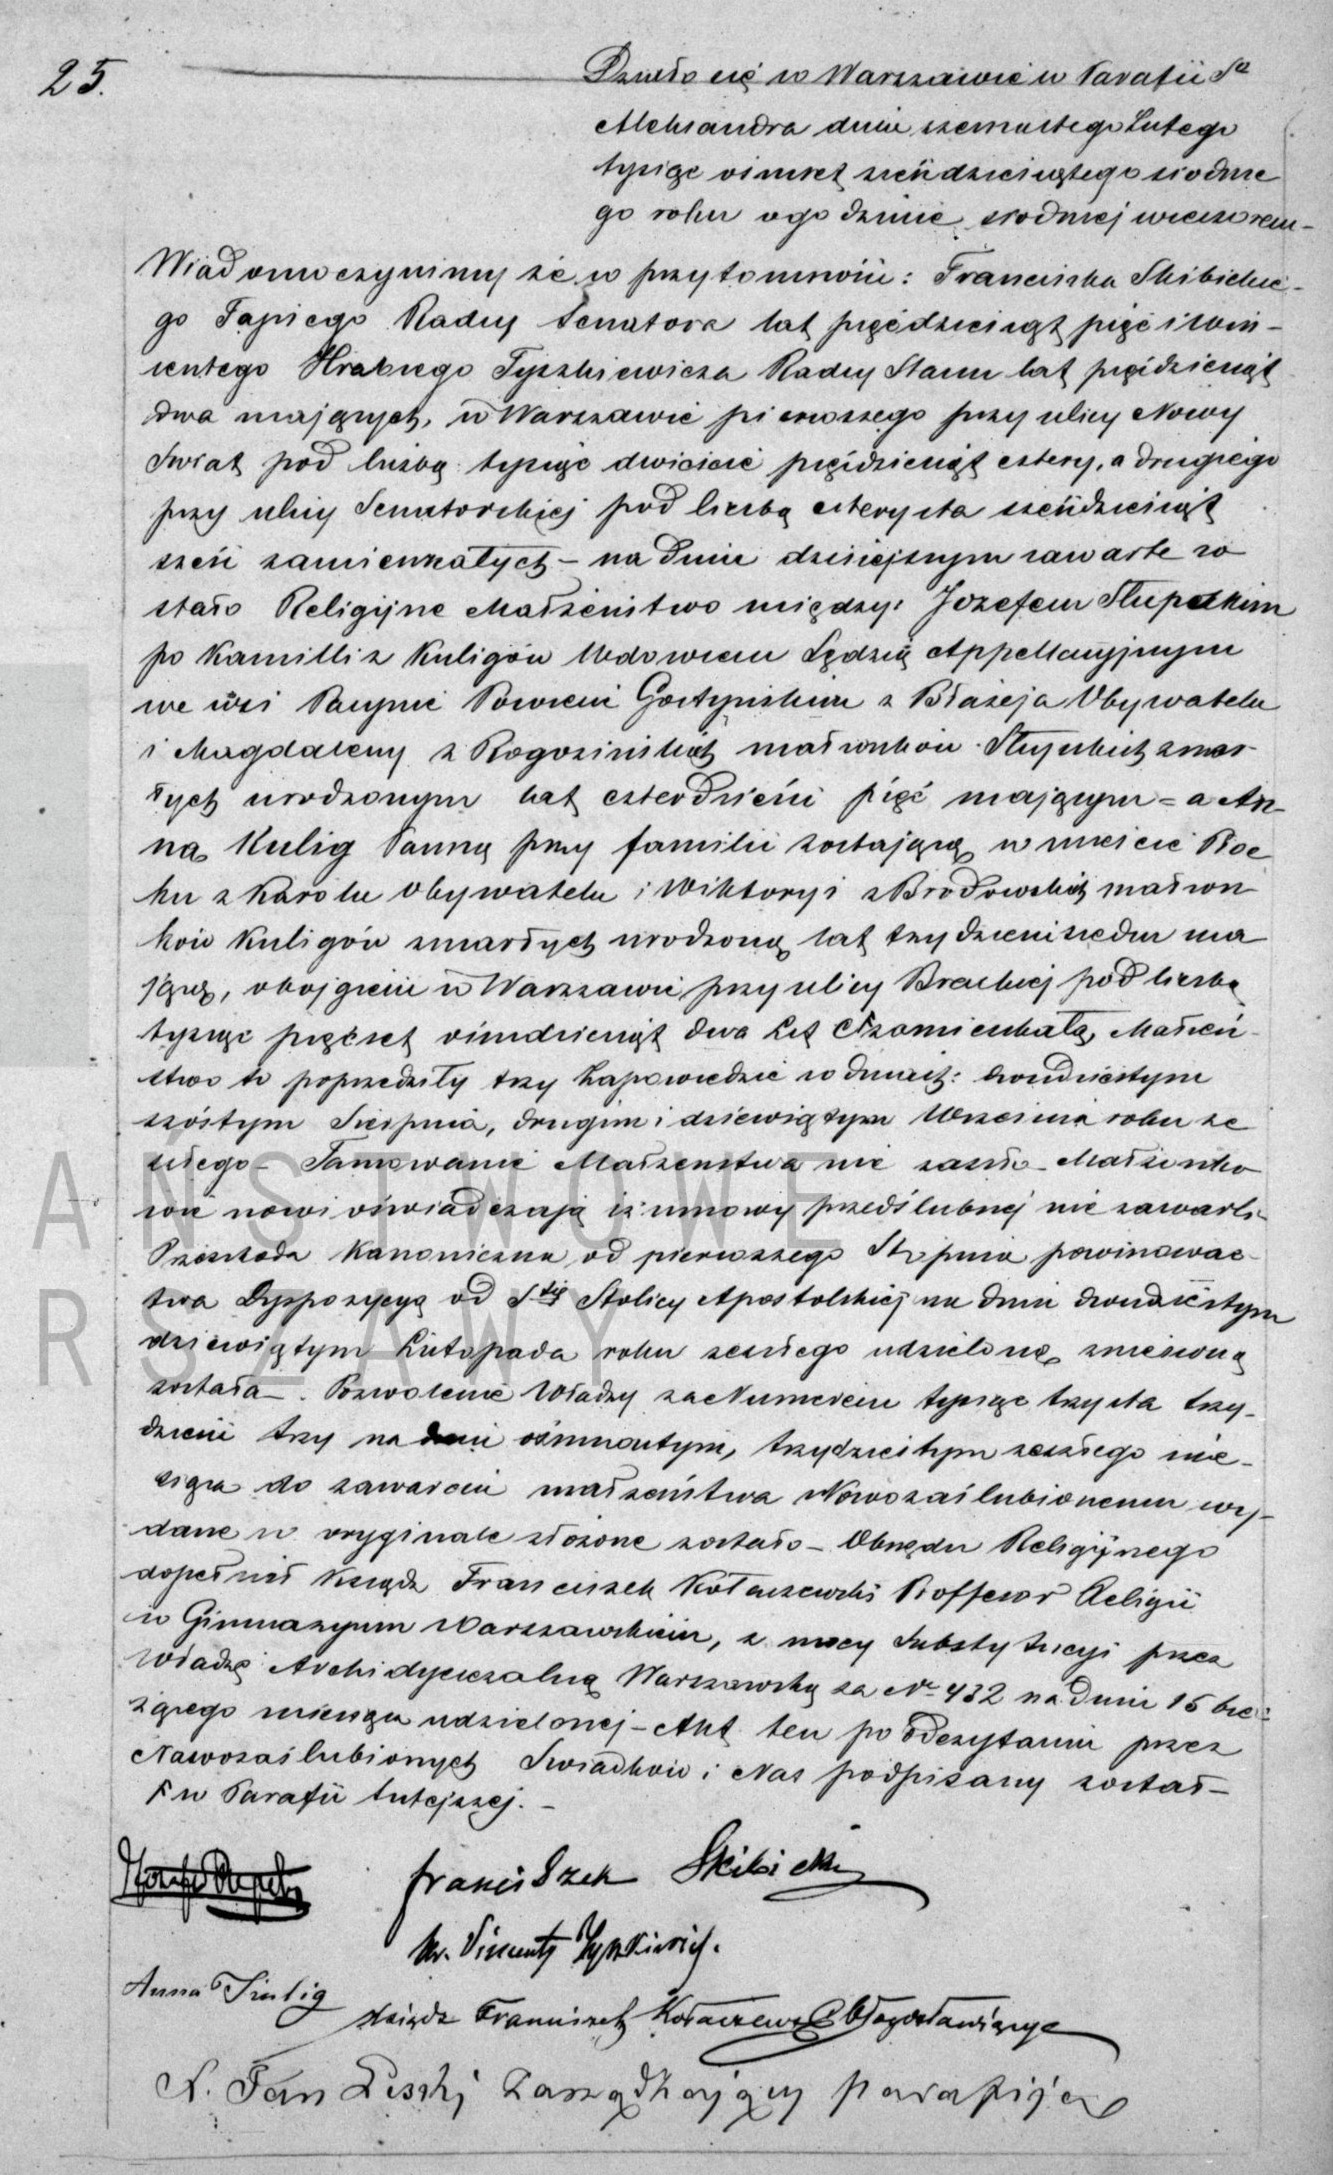 25.
Działo się w Warszawie w Parafii Sº
Aleksandra dnia szesnastego Lutego
tysiąc ośmset sześdziesiątego siódme
go roku o godzinie siodmej wieczorem –
Wiadomo czynimy że w przytomności: Franciszka Skibickie-
go Tajnego Radcy Senatora lat pięćdziesiąt pięć i Win-
centego Hrabiego Tyszkiewicza Radcy Stanu lat pięćdziesiąt
dwa mających, w Warszawie pierwszego przy ulicy Nowy
Świat pod liczbą tysiąc dwieście pięćdziesiąt cztery, a drugiego
przy ulicy Senatorskiej pod liczbą czterysta sześdziesiąt
sześć zamieszkałych – na dniu dzisiejszym zawarte zo
stało Religijne Małżeństwo między: Józefem Słupeckim
po Kamilli z Kuligów Wdowcem Sędzią Appellacyjnym
we wsi Powiecie Gostyńskim z Błażeja Obywatela
i Magdaleny z Rogozińskich małżonków Słupeckich zmar-
łych urodzonym lat czterdzieści pięć mającym = a An-
ną Kulig Panną przy familii zostającą w mieście
z Karola Obywatela i Wiktoryi z Brodowskich małżon
ków Kuligów zmarłych urodzoną lat trzydzieści siedm ma
jącą, obojgiem w Warszawie przy ulicy Brackiej pod liczbą
tysiąc pięćset ośmdziesiąt dwa Lit zamieszkałą, Małżeń-
stwo to poprzedziły trzy Zapowiedzie w dniach: dwudziestym
szóstym Sierpnia, drugim i dziewiątym Września roku ze
szłego – Tamowanie Małżeństwa nie zaszło – Małżonko
wie nowi oświadczają iż umowy przedślubnej nie zawarli –
Przeszkoda Kanoniczna od pierwszego Stopnia powinowac-
twa Dyspozycyą od Stéj Stolicy Apostolskiej na dniu dwudziestym
dziewiątym Listopada roku zeszłego udzieloną, zniesioną
została –. Pozwolenie Władzy za Numerem tysiąc trzysta trzy-
dzieści trzy na dniu ośmnastym, trzydziestym zeszłego mie-
siąca do zawarcia małżeństwa Nowozaślubionemu wy-
dane w oryginale złożone zostało – Obrzędu Religijnego
dopełnił Ksiądz Franciszek Kołaczewski Professor Religii
w Gimnazyum Warszawskiem, z mocy Substytucyi przez
Władzę Archidyecezalną Warszawską za Nº 432 na dniu 15 bie-
żącego miesiąca udzielonej – Akt ten po odczytaniu przez
Nowozaślubionych Świadków i Nas podpisany został –
F w Parafii tutejszej. –
Franciszek Skibicki
hr. Vincenty Tyszkiewicz.
Anna Kulig
Ksiądz Franciszek Kołaczewski Błogosławiący
X. Jan Zarządzający parafiją
AŃSTWOWE
RSZAWY